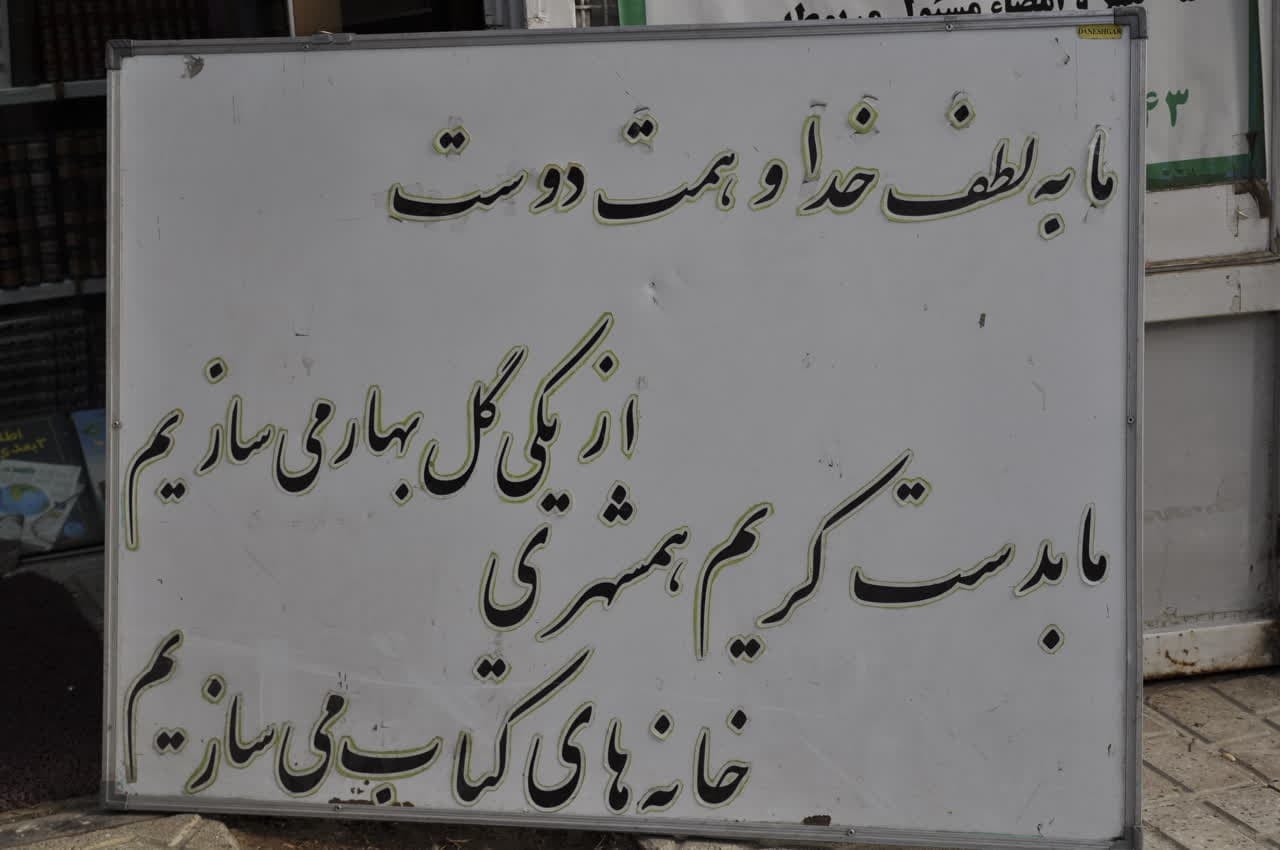 DANESHGAR
ما به لطف خدا و همت دوست
از یکی گل بهار می سازیم
ما بدست کریم همشهری
خانه های کتاب می سازیم